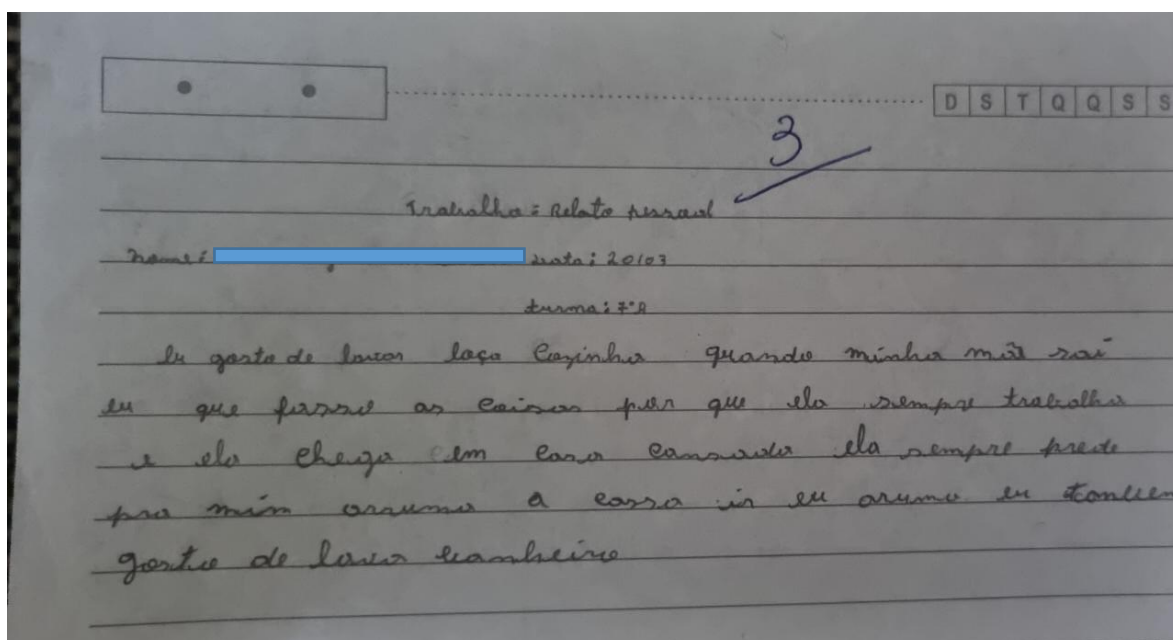 D S T Q Q S S
3
Trabalho: Relato pessoal
nome: data: 20/03
turma: 7ºA
Eu gosto de lavar laça Cozinha quando minha mãe sai
eu que fasso as coisas por que ela sempre trabalha
e ela chega em casa cansada ela sempre prede
pra mim arruma a cassa in eu arumo eu tanbem
gosto de lava banheiro